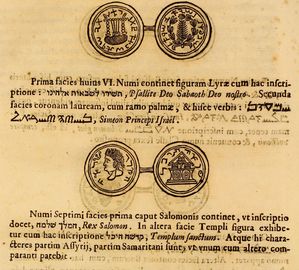 Prima facies huius VI. Numi continet figuram Lyræ cum hac inscri-
ptione : Psallite Deo Sabaoth Deo nostro. Secunda
facies coronam lauream, cum ramo palmæ, & hisce verbis :
Simeon Princeps Israel.
Numi Septimi facies prima caput Salomonis continet, ut inscriptio
docet, המלך שלמה, Rex Salomon. In altera facie Templi figura exhibe-
tur cum hac inscriptione, היכל, Templum sanctum. Atque hi chara-
cteres partim Assyrij, partim Samaritani sunt, ut unum cum altero com-
paranti patebit.